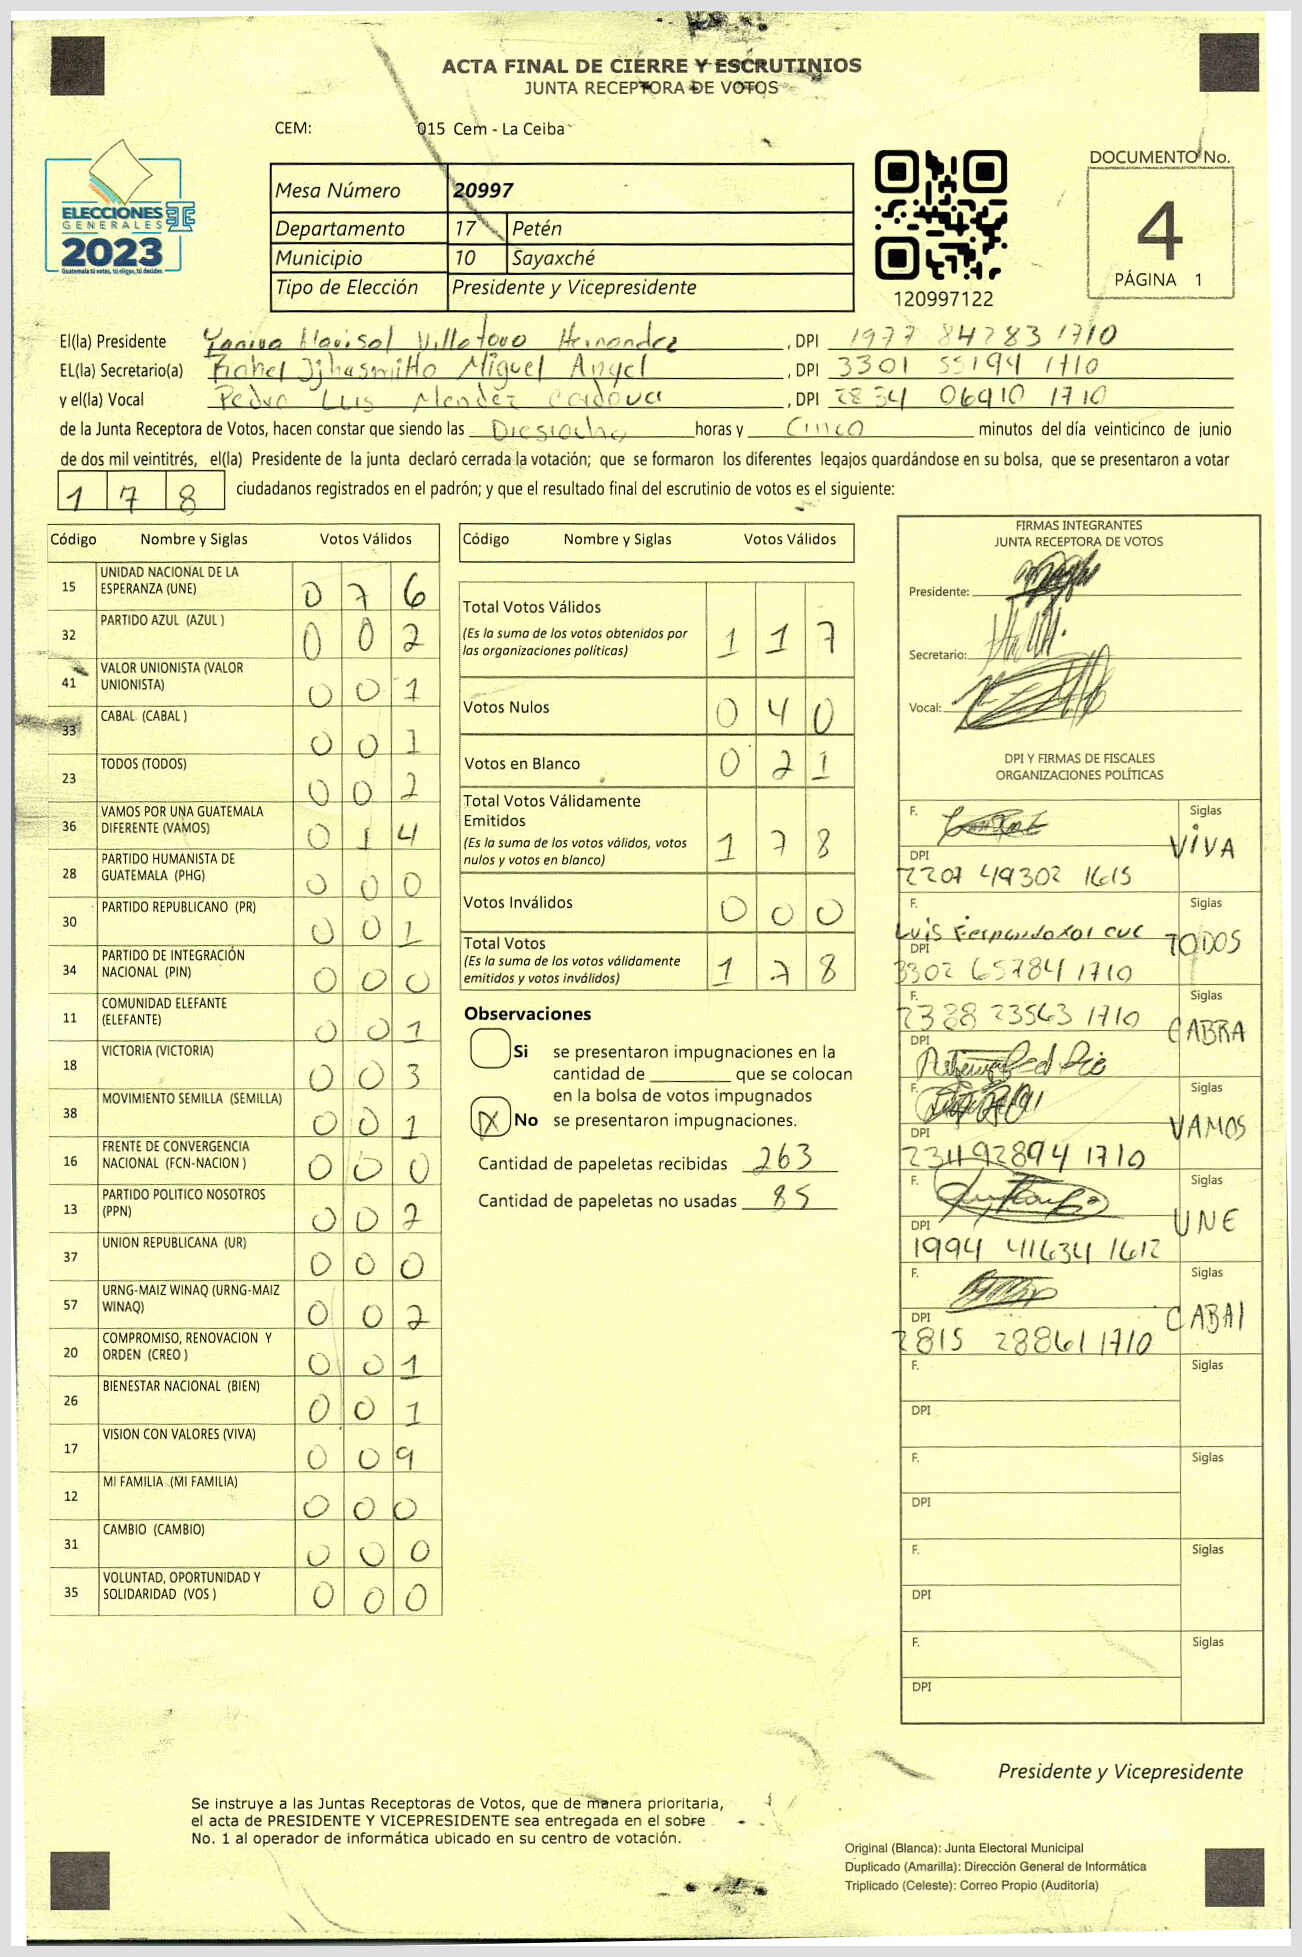 ACTA FINAL DE CIERRE Y ESCRUTINIOS
JUNTA RECEPTORA DE VOTOS
CEM: 015 Cem - La Ceiba
ELECCIONES
GENERALES
2023
Guatemala tú votas, tú eliges, tú decides
Mesa Número 20997
Departamento 17 Petén
Municipio 10 Sayaxché
Tipo de Elección Presidente y Vicepresidente
120997122
DOCUMENTO No.
4
PÁGINA 1
El(la) Presidente Marisol Hernandez , DPI 1977 84283 1710
EL(la) Secretario(a) Miguel Angel , DPI 3301 55194 1710
y el(la) Vocal Pedro Luis Mendez Cordova , DPI 2834 06910 1710
de la Junta Receptora de Votos, hacen constar que siendo las Diesiocho horas y Cinco minutos del día veinticinco de junio
de dos mil veintitrés, el(la) Presidente de la junta declaró cerrada la votación; que se formaron los diferentes legajos guardándose en su bolsa, que se presentaron a votar
178 ciudadanos registrados en el padrón; y que el resultado final del escrutinio de votos es el siguiente:
Código Nombre y Siglas Votos Válidos
15 UNIDAD NACIONAL DE LA ESPERANZA (UNE) 0 7 6
32 PARTIDO AZUL (AZUL ) 0 0 2
41 VALOR UNIONISTA (VALOR UNIONISTA) 0 0 1
33 CABAL (CABAL ) 0 0 1
23 TODOS (TODOS) 0 0 2
36 VAMOS POR UNA GUATEMALA DIFERENTE (VAMOS) 0 1 4
28 PARTIDO HUMANISTA DE GUATEMALA (PHG) 0 0 0
30 PARTIDO REPUBLICANO (PR) 0 0 1
34 PARTIDO DE INTEGRACIÓN NACIONAL (PIN) 0 0 0
11 COMUNIDAD ELEFANTE (ELEFANTE) 0 0 1
18 VICTORIA (VICTORIA) 0 0 3
38 MOVIMIENTO SEMILLA (SEMILLA) 0 0 1
16 FRENTE DE CONVERGENCIA NACIONAL (FCN-NACION ) 0 0 0
13 PARTIDO POLITICO NOSOTROS (PPN) 0 0 2
37 UNION REPUBLICANA (UR) 0 0 0
57 URNG-MAIZ WINAQ (URNG-MAIZ WINAQ) 0 0 2
20 COMPROMISO, RENOVACION Y ORDEN (CREO ) 0 0 1
26 BIENESTAR NACIONAL (BIEN) 0 0 1
17 VISION CON VALORES (VIVA) 0 0 9
12 MI FAMILIA (MI FAMILIA) 0 0 0
31 CAMBIO (CAMBIO) 0 0 0
35 VOLUNTAD, OPORTUNIDAD Y SOLIDARIDAD (VOS ) 0 0 0
Código Nombre y Siglas Votos Válidos
Total Votos Válidos 1 1 7
(Es la suma de los votos obtenidos por
las organizaciones políticas)
Votos Nulos 0 4 0
Votos en Blanco 0 2 1
Total Votos Válidamente
Emitidos 1 7 8
(Es la suma de los votos válidos, votos
nulos y votos en blanco)
Votos Inválidos 0 0 0
Total Votos 1 7 8
(Es la suma de los votos válidamente
emitidos y votos inválidos)
Observaciones
Si se presentaron impugnaciones en la
cantidad de ________ que se colocan
en la bolsa de votos impugnados
X No se presentaron impugnaciones.
Cantidad de papeletas recibidas 263
Cantidad de papeletas no usadas 85
FIRMAS INTEGRANTES
JUNTA RECEPTORA DE VOTOS
Presidente:
Secretario:
Vocal:
DPI Y FIRMAS DE FISCALES
ORGANIZACIONES POLÍTICAS
F. Siglas
VIVA
DPI
2207 49302 1615
F. Siglas
Luis Fernando Xol cuc
TODOS
DPI
3302 65784 1710
F. Siglas
2388 23563 1710
CABRA
DPI
F. Siglas
VAMOS
DPI
2311 92894 1710
F. Siglas
UNE
DPI
1994 41634 1612
F. Siglas
CABAl
DPI
2815 28861 1710
F. Siglas
DPI
F. Siglas
DPI
F. Siglas
DPI
F. Siglas
DPI
Presidente y Vicepresidente
Se instruye a las Juntas Receptoras de Votos, que de manera prioritaria,
el acta de PRESIDENTE Y VICEPRESIDENTE sea entregada en el sobre
No. 1 al operador de informática ubicado en su centro de votación.
Original (Blanca): Junta Electoral Municipal
Duplicado (Amarilla): Dirección General de Informática
Triplicado (Celeste): Correo Propio (Auditoría)